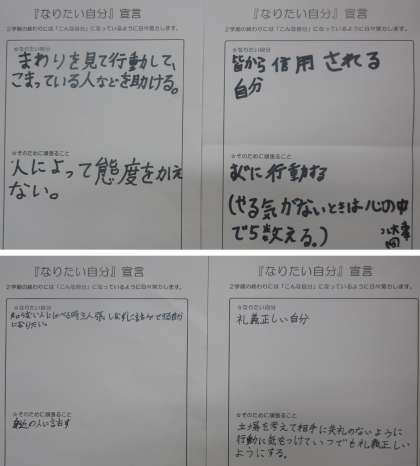 『なりたい自分』宣言
2学期の終わりには「こんな自分」になっているように日々努力します。
☆なりたい自分
まわりを見て行動して、
こまっている人などを助ける。
☆そのために頑張ること
人によって態度をかえ
ない。
『なりたい自分』宣言
2学期の終わりには「こんな自分」になっているように日々努力します。
☆なりたい自分
皆から信用される
自分
☆そのために頑張ること
すぐに行動する
(やる気がないときは心の中
で5数える。)
『なりたい自分』宣言
2学期の終わりには「こんな自分」になっているように日々努力します。
☆なりたい自分
知らない人としゃべる時
になりたい。
☆そのために頑張ること
身近の人に話す
『なりたい自分』宣言
2学期の終わりには「こんな自分」になっているように日々努力します。
☆なりたい自分
礼義正しい自分
☆そのために頑張ること
土場を考えて相手に失礼のないように
行動に気をつけていつでも礼義正しい
ようにする。